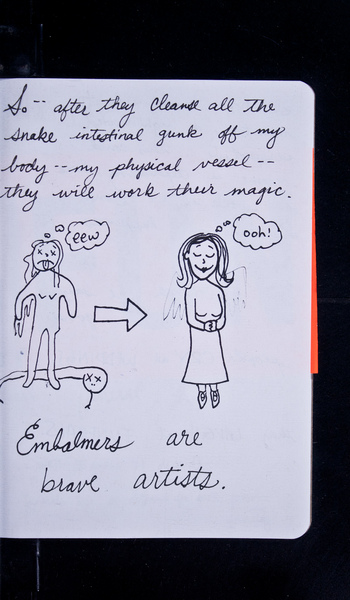 So -- after they cleanse all the
snake intestinal gunk off my
body -- my physical vessel --
they will work their magic.
eew
ooh!
Embalmers are
brave artists.